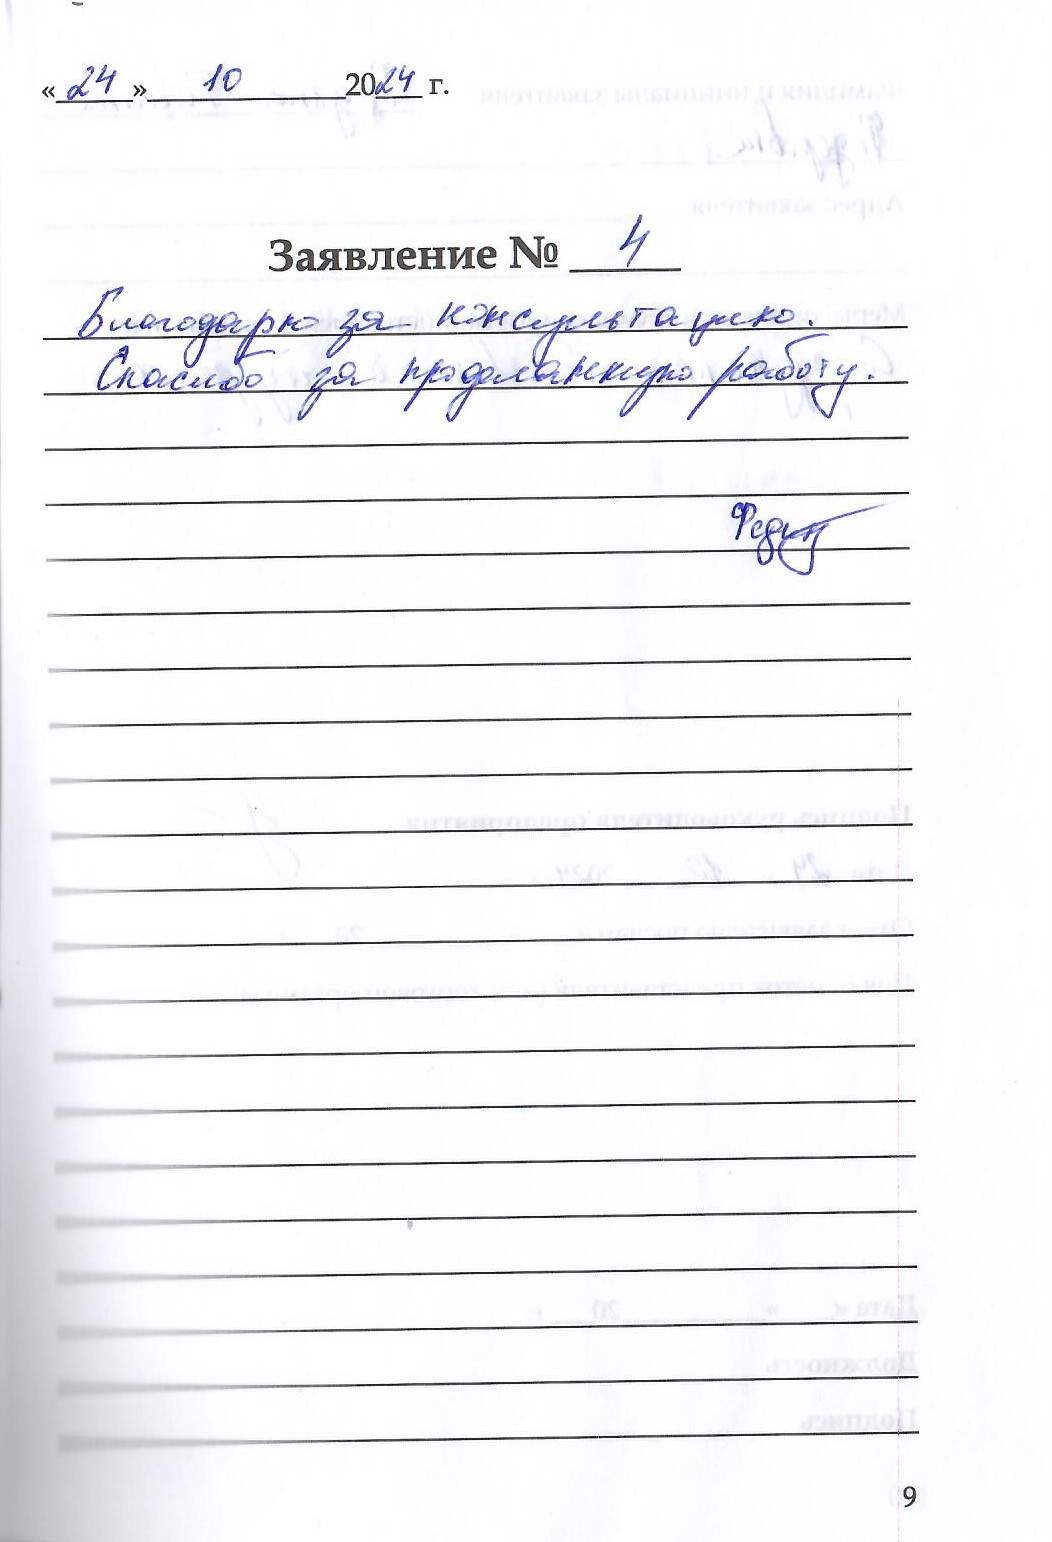 « 24 » 10 2024 г.
Заявление № 4
Благодарю за консультацию.
Спасибо за проделанную работу.
9